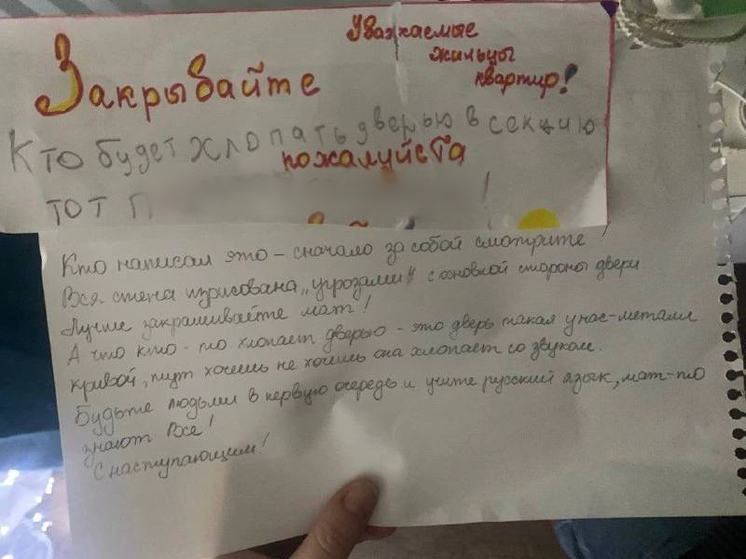 Уважаемые
жильцы
квартир!
Закрывайте
Кто будет хлопать дверью в секцию
пожалуйста
тот П !
Кто написал это - сначало за собой смотрите!
Вся стена изрисована „угрозами" с основной стороны двери
Лучше закрашивайте мат!
А что кто-то хлопает дверью - это дверь такая у нас-металл
кривой, тут хочешь не хочешь она хлопает со звуком.
Будьте людьми в первую очередь и учите русский язык, мат-то
знают Все!
С наступающим!